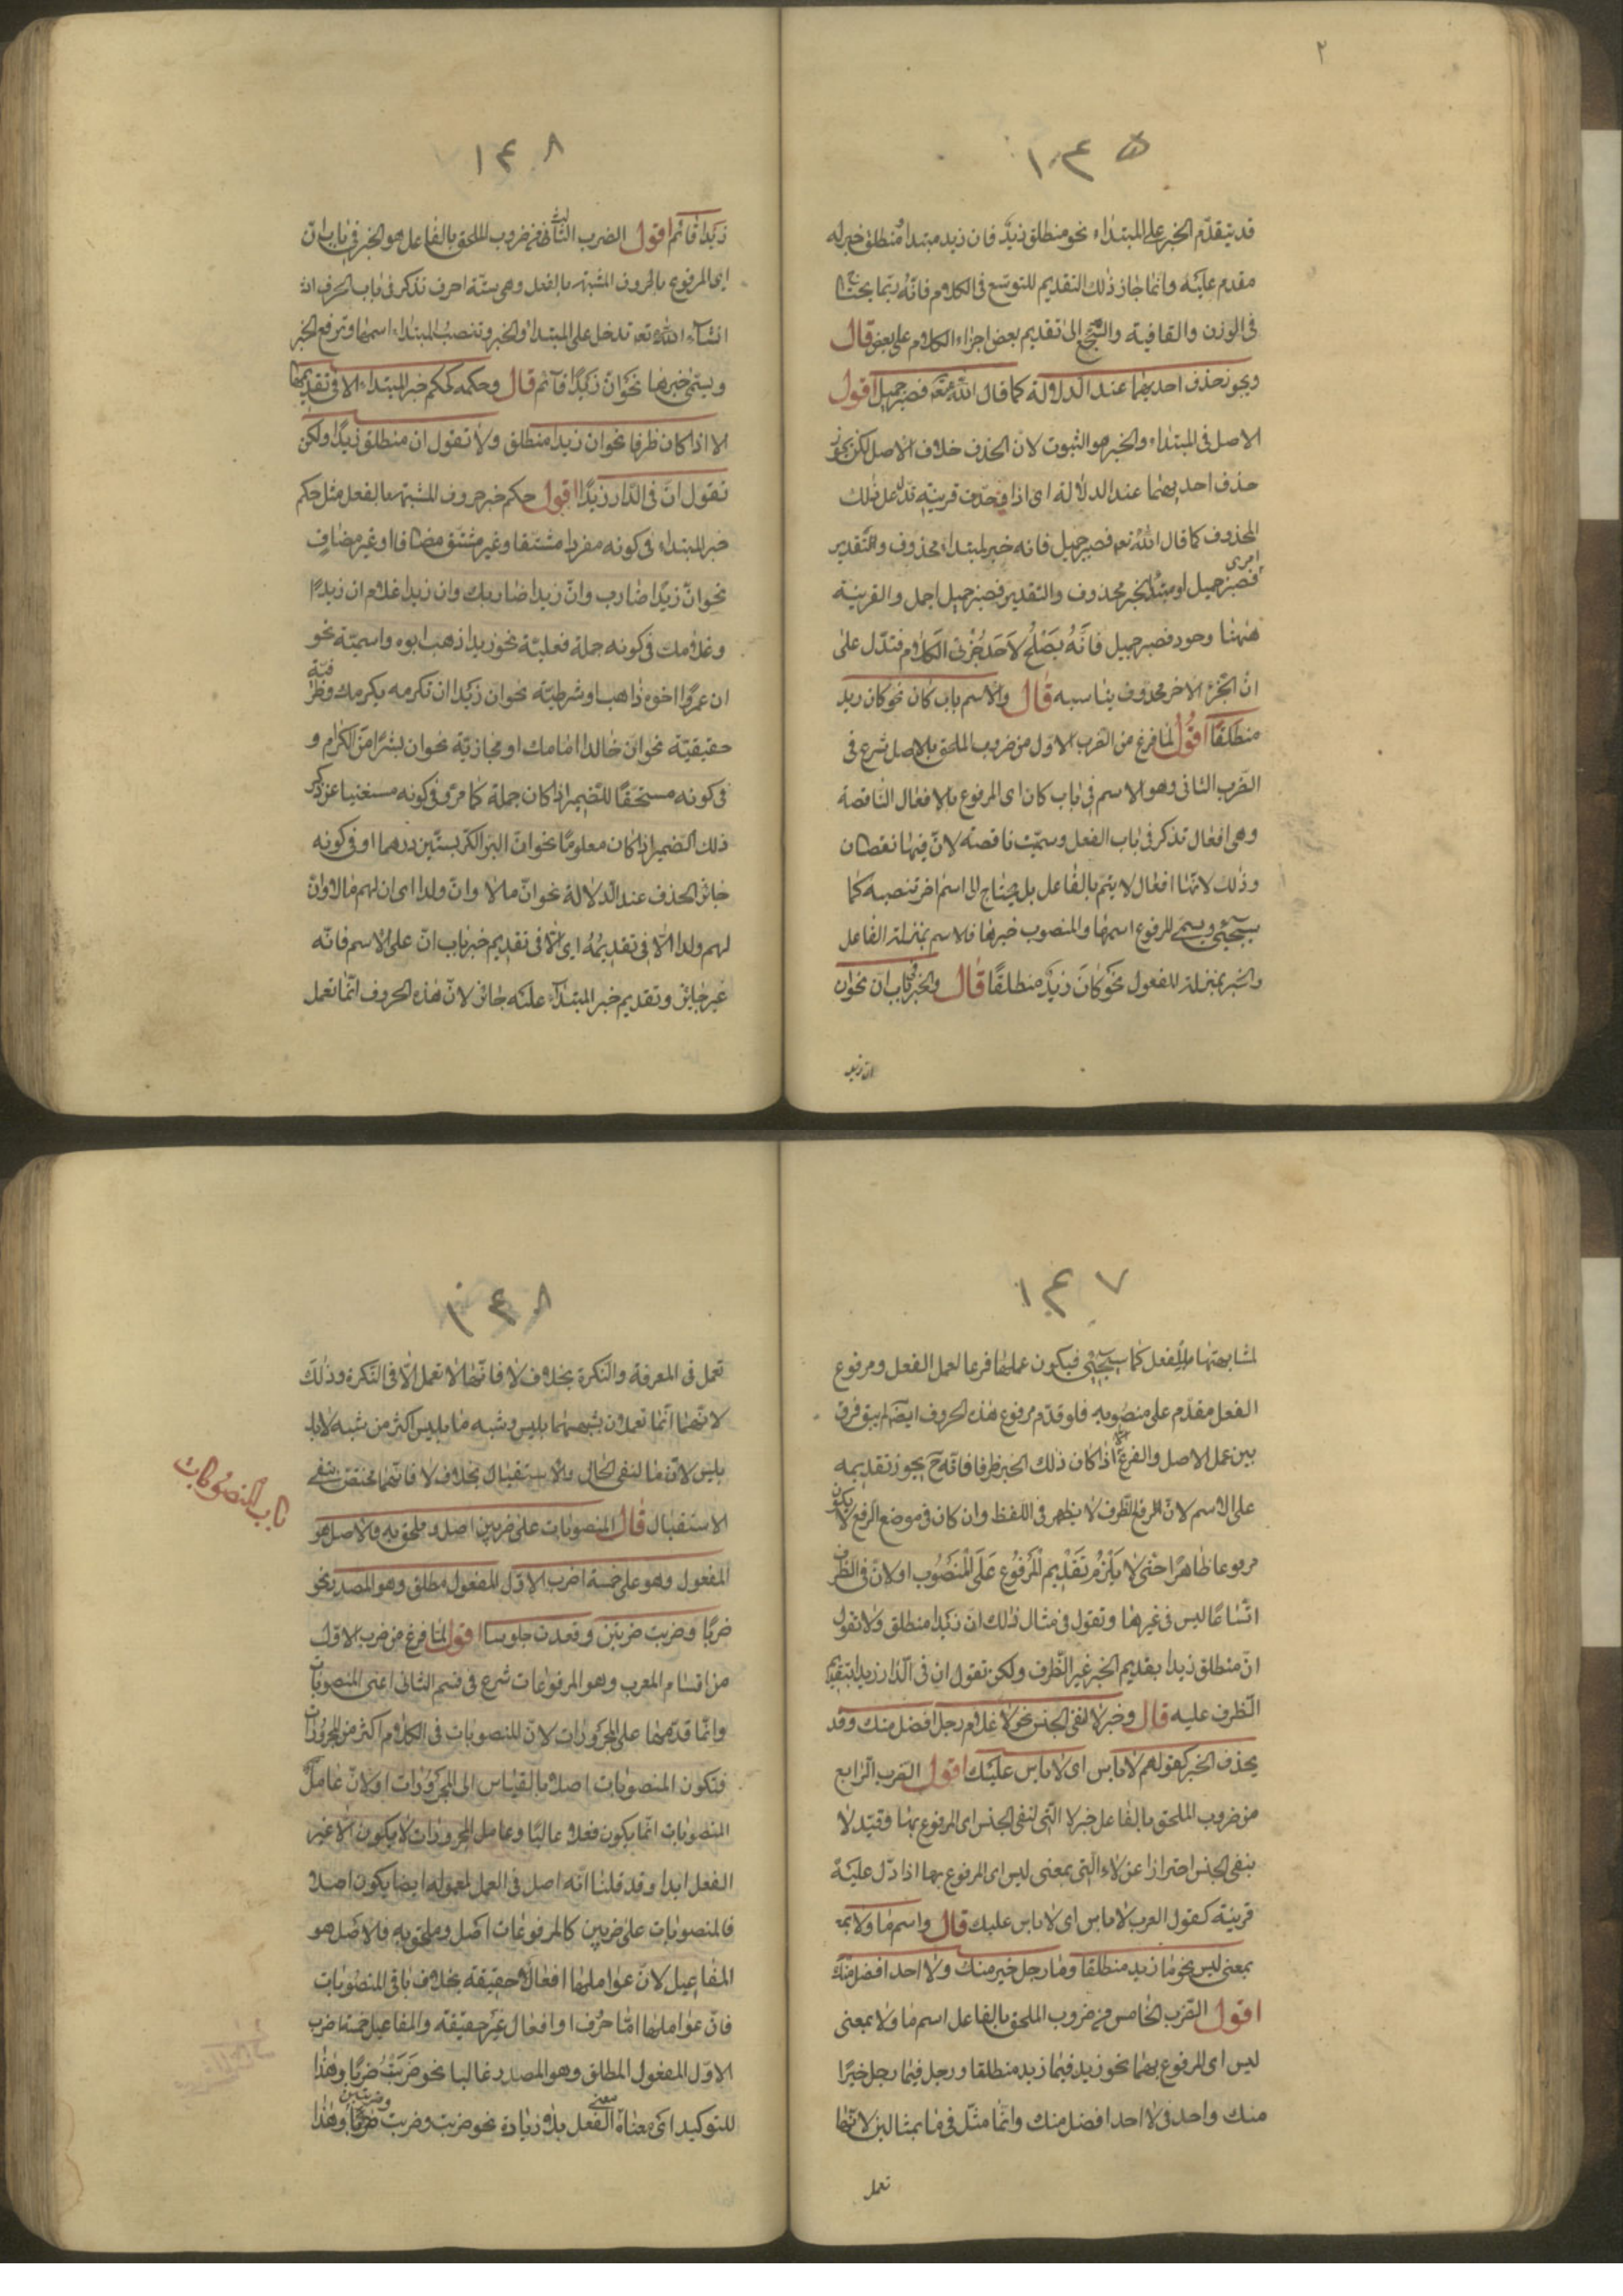 ٢
١٤٥
قد يتقدّم الخبر على المبتداء نحو منطلق زيد فان زيد مبتدا ومنطلق خبر له
مقدم عليه وانما جاز ذلك التقديم للتوسّع فى الكلام فانّه ربّما يحتاج
فى الوزن والقافية والسجع الى تقديم بعض اجزاء الكلام على بعض قال
ويجوز حذف احدهما عند الدلالة كما قال الله تعه فصبر جميل اقول
الاصل فى المبتداء والخبر هو الثبوت لان الحذف خلاف الاصل لكن يجوز
حذف احدهما عند الدلالة اى اذا وجدت قرينة تدل على ذلك
المحذوف كما قال الله تعه فصبر جميل فانه خبر لمبتداء محذوف والتقدير
امرى
فصبر جميل او مبتدا لخبر محذوف والتقدير فصبر جميل اجمل والقرينة
ههنا وجود فصبر جميل فانّه يصلح لاحد جزئى الكلام فتدلّ على
انّ الجزء الاخر محذوف يناسبه قال والاسم باب كان نحو كان زيد
منطلقًا اقول لما فرغ من الضرب الاول من ضروب الملحق بالاصل شرع فى
الضرب الثانى وهو الاسم فى باب كان اى المرفوع بالافعال الناقصة
وهى افعال تذكر فى باب الفعل وسميّت ناقصة لانّ فيها نقصان
وذلك لانّها افعال لا يتمّ بالفاعل بل يحتاج الى اسم اخر تنصبه كما
سيجئ ويسمى المرفوع اسمها والمنصوب خبرها فالاسم بمنزلة الفاعل
والخبر بمنزلة المفعول نحو كان زيد منطلقًا قال والخبر فى باب ان نحو ان
ان زيد
١٤٨
زيدا قائم اقول الضرب الثالث من ضروب الملحق بالفاعل هو الخبر فى باب انّ
اى المرفوع بالحروف المشبّهة بالفعل وهى ستّة احرف تذكر فى باب الحرف
انشاء الله تعه تدخل على المبتدا والخبر وتنصب المبتداء اسمها وترفع الخبر
ويسمّى خبرها نحو انّ زيدًا قائم قال وحكمه كحكم خبر المبتداء الا فى تقديمها
الا اذا كان ظرفا نحو ان زيدا منطلق ولا تقول ان منطلق زيدًا ولكن
تقول انّ فى الدار زيدًا اقول حكم خبر حروف المشبّهة بالفعل مثل حكم
خبر المبتداء فى كونه مفردا مشتقا وغير مشتق مضافا او غير مضاف
نحو انّ زيدًا ضارب وانّ زيدا ضاربك وان زيدا غلام ان زيدًا
وغلامك فى كونه جملة فعليّة نحو زيدا ذهب ابوه واسميّة نحو
ان عمرًوا اخوه ذاهب او شرطيّة نحو ان زيدا ان تكرمه يكرمك وظرفيّة
حقيقيّة نحو ان خالدا امامك او مجازيّة نحو ان بشرًا من الكرام و
فى كونه مستحقًا للضمير اذا كان جملة كما مرّ وفى كونه مستغنيا عن ذكر
ذلك الضمير اذا كان معلومًا نحو انّ البر الكرّ بستّين درهما او فى كونه
جائز الحذف عند الدلالة نحو انّ مالا وانّ ولدا اى ان لهم مالا وانّ
لهم ولدا الّا فى تقديمه اى الّا فى تقديم خبر باب انّ على الاسم فانّه
غير جايز وتقديم خبر المبتداء عليه جائز لانّ هذه الحروف انّما تعمل
١٤٧
لمشابهتها بالفعل كما سيجئ فيكون عملها فرعا لعمل الفعل ومرفوع
الفعل مقدّم على منصوبه فلو قدّم مرفوع هذه الحروف ايضًا لم يبق فرق
بين عمل الاصل والفرع الا اذا كان ذلك الخبر ظرفا فانّه ح يجوز تقديمه
على الاسم لانّ الرفع للظرف لا يظهر فى اللفظ وان كان فى موضع الرفع لا يكون
مرفوعا ظاهرًا حتى لا يلزم تقديم المرفوع على المنصوب او لانّ فى الظرف
اتّساعًا ليس فى غيرها وتقول فى مثال ذلك ان زيدا منطلق ولا تقول
انّ منطلق زيدا بتقديم الخبر غير الظرف ولكن تقول ان فى الدار زيدا بتقديم
الظرف عليه قال وخبر لا لنفى الجنس نحو لا غلام رجل افضل منك وقد
يحذف الخبر كقولهم لا باس اى لا باس عليك اقول الضرب الرابع
من ضروب الملحق بالفاعل خبر لا الّتى لنفى الجنس اى المرفوع بها وقيّد لا
بنفى الجنس احترازا عن لا الّتى بمعنى ليس اى المرفوع بها اذا دلّ عليه
قرينة كقول العرب لا باس اى لا باس عليك قال واسم ما ولا بمـ
بمعنى ليس نحو ما زيد منطلقا وما رجل خير منك ولا احد افضل منك
اقول الضرب الخامس من ضروب الملحق بالفاعل اسم ما ولا بمعنى
ليس اى المرفوع بهما نحو زيد فيما زيد منطلقا ورجل فيما رجل خيرًا
منك واحد فى لا احد افضل منك وانّما مثّل فى ما بمثالين لانّها
تعمل
١٤٨
تعمل فى المعرفة والنكرة بخلاف لا فانّها لا تعمل الّا فى النكرة وذلك
لانّهما انّما تعملان بشبههما بليس وشبه ما بليس اكثر من شبه لا
بليس لانّ ما لنفى الحال ولا للاستقبال بخلاف لا فانّها مختصّ بنفى
الاستقبال قال المنصوبات على ضربين اصل وملحق به والاصل هو
باب المنصوبات
المفعول وهو على خمسة اضرب الاوّل المفعول مطلق وهو المصدر نحو
ضربًا وضربت ضربتين وقعدت جلوسا اقول لما فرغ من ضرب الاول
من اقسام المعرب وهو المرفوعات شرع فى قسم الثانى اعنى المنصوبات
وانّما قدّمها على المجرورات لانّ المنصوبات فى الكلام اكثر من المجرورات
فتكون المنصوبات اصلا بالقياس الى المجرورات او لانّ عامل
المنصوبات انّما يكون فعلا غالبًا وعامل المجرورات لا يكون الّا غير
الفعل ابدا وقد قلنا انّه اصل فى العمل لمعموله ايضا يكون اصلا
فالمنصوبات على ضربين كالمرفوعات اصل وملحق به فالاصل هو
المفاعيل لانّ عواملها افعال حقيقة بخلاف باقى المنصوبات
فانّ عواملها امّا حرف او افعال غير حقيقة والمفاعيل خمسة اضرب
الاوّل المفعول المطلق وهو المصدر غالبا نحو ضربت ضربًا وهذا
للتوكيد اى معناه معنى الفعل بلا زيادة نحو ضربت وضربت ضربًا وضربتين وهذا